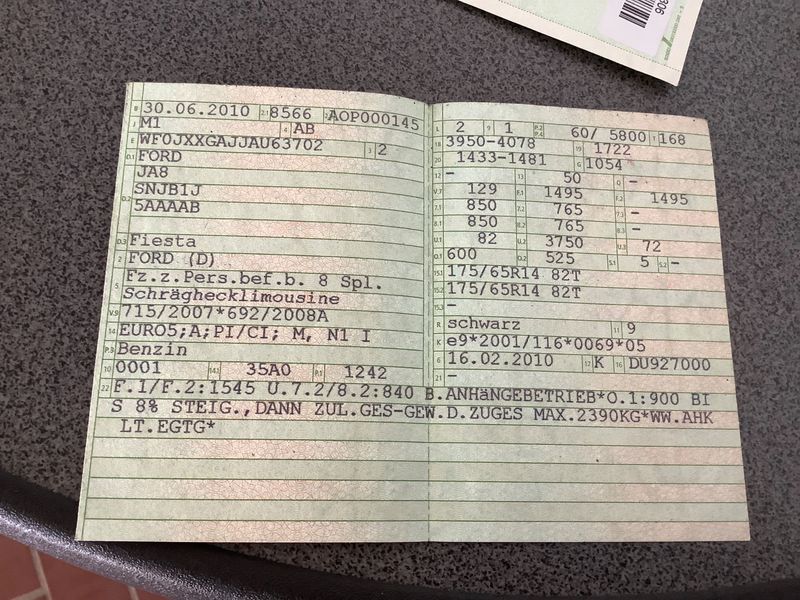 B 30.06.2010 2.1 8566 2.2 AOP000145
J M1 4 AB
E WF0JXXGAJJAU63702 3 2
D.1 FORD
JA8
D.2 SNJB1J
5AAAAB
D.3 Fiesta
2 FORD (D)
5 Fz.z.Pers.bef.b. 8 Spl.
Schräghecklimousine
V.9 715/2007*692/2008A
14 EURO5;A;PI/CI; M, N1 I
P.3 Benzin
10 0001 14.1 35A0 P.1 1242
L 2 9 1 P.2 P.4 60/ 5800 T 168
18 3950-4078 19 1722
20 1433-1481 G 1054
12 – 13 50 Q –
V.7 129 F.1 1495 F.2 1495
7.1 850 7.2 765 7.3 –
8.1 850 8.2 765 8.3 –
U.1 82 U.2 3750 U.3 72
O.1 600 O.2 525 S.1 5 S.2 –
15.1 175/65R14 82T
15.2 175/65R14 82T
15.3 –
R schwarz 11 9
K e9*2001/116*0069*05
6 16.02.2010 17 K 16 DU927000
21 –
22 F.1/F.2:1545 U.7.2/8.2:840 B.ANHäNGEBETRIEB*O.1:900 BI
S 8% STEIG.,DANN ZUL.GES-GEW.D.ZUGES MAX.2390KG*WW.AHK
LT.EGTG*